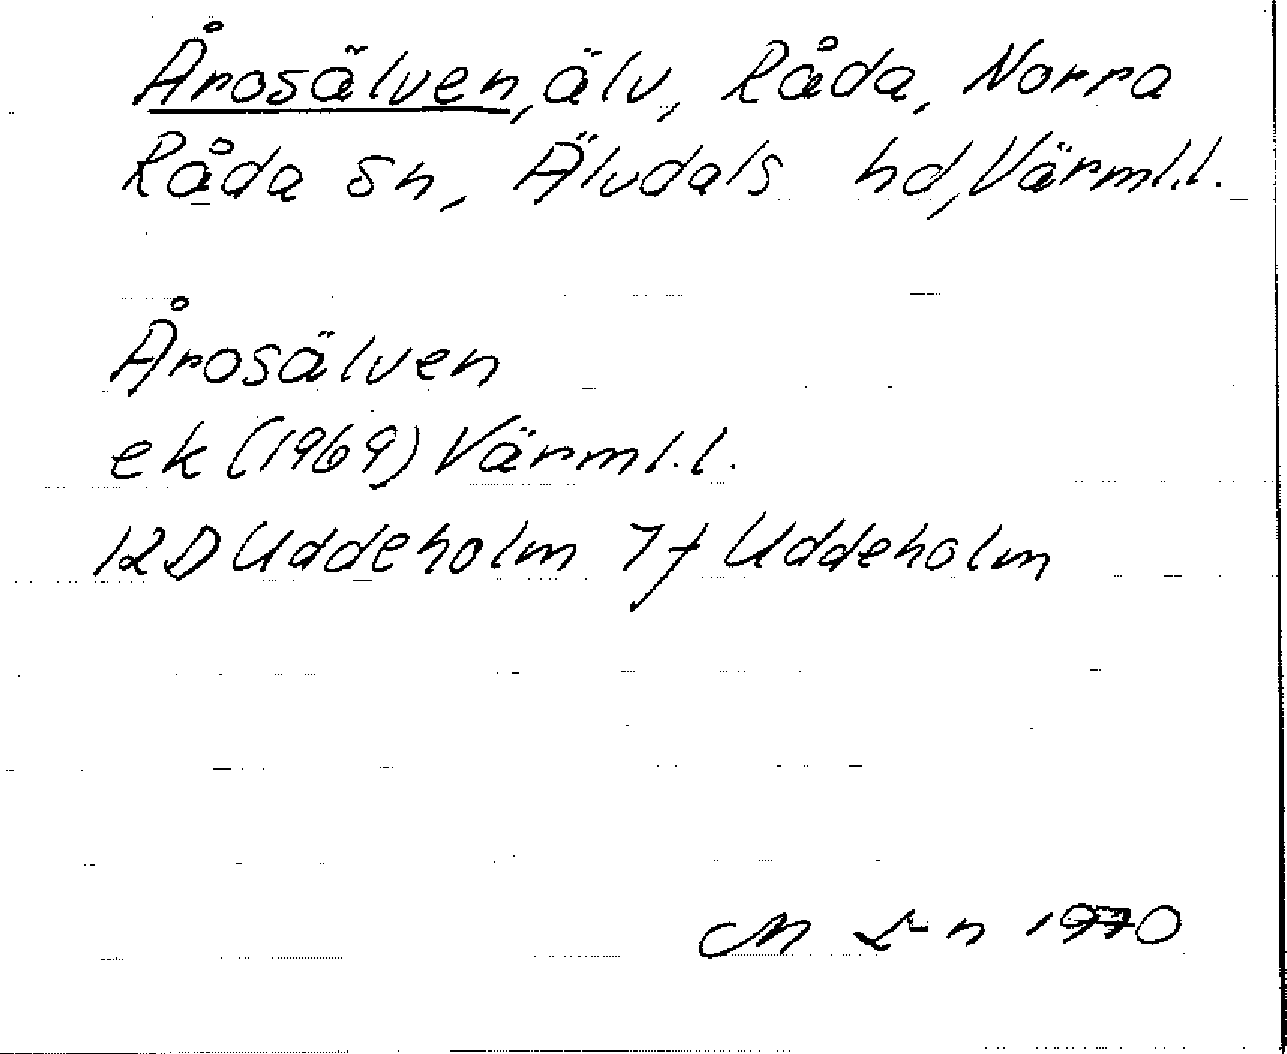 Årosälven, älv, Råda, Norra
Råda sn, Älvdals hd, Värml.l.
Årosälven
ek (1969) Värml.l.
12D Uddeholm 7f Uddeholm
M L-n 1970